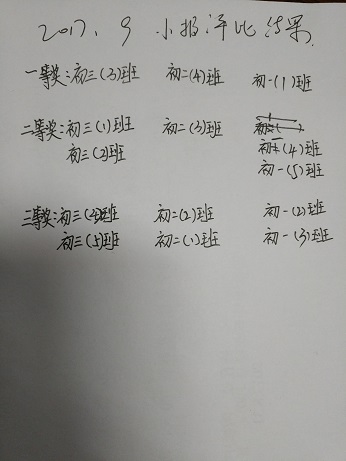 2017.9 小报评比结果
一等奖:初三(3)班 初二(4)班 初一(1)班
二等奖:初三(1)班 初二(3)班
初三(2)班 初一(4)班
初一(5)班
三等奖:初三(4)班 初二(2)班 初一(2)班
初三(5)班 初二(1)班 初一(3)班